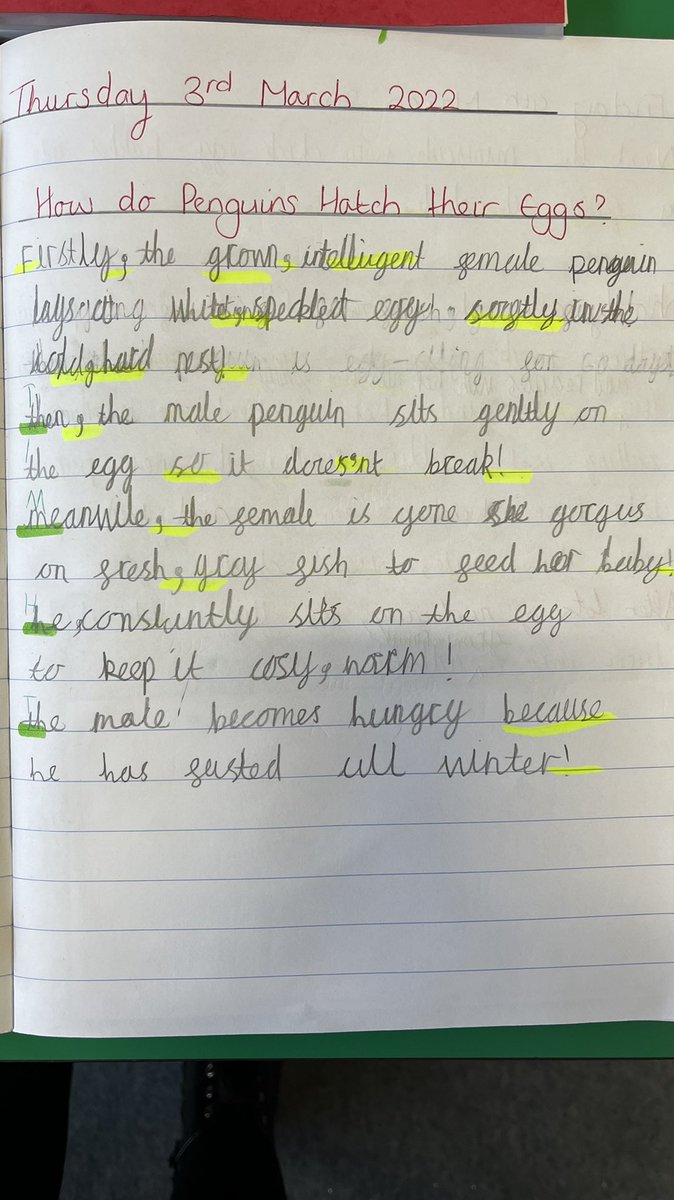 Thursday 3rd March 2022
How do Penguins Hatch their Eggs?
Firstly, the grown, intelligent female penguin
lays white, speckled egg softly in the
cold, hard nest!
Then, the male penguin sits gently on
the egg so it doresn't break!
Meanwile, the female is gone she gorgus
on fresh, gray fish to feed her baby!
He, constantly sits on the egg
to keep it cosy, warm!
The male becomes hungry because
he has fasted all winter!